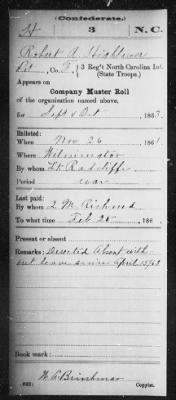 (Confederate.)
H 3 N.C.
Robert A. Hightower
Pvt, Co. F, 3 Reg't North Carolina Inf.
(State Troops.)
Appears on
Company Muster Roll
of the organization named above,
for Sept & Oct, 1863
Enlisted:
When Nov 26, 1861
Where Wilmington
By whom Lt. Radcliffe
Period war
Last paid:
By whom Q M. Richmd
To what time Feb 28, 186
Present or absent
Remarks: Deserted Absent with-
out leave since April 15/63
Book mark:
W. P. Brinshmar
(642) Copyist.